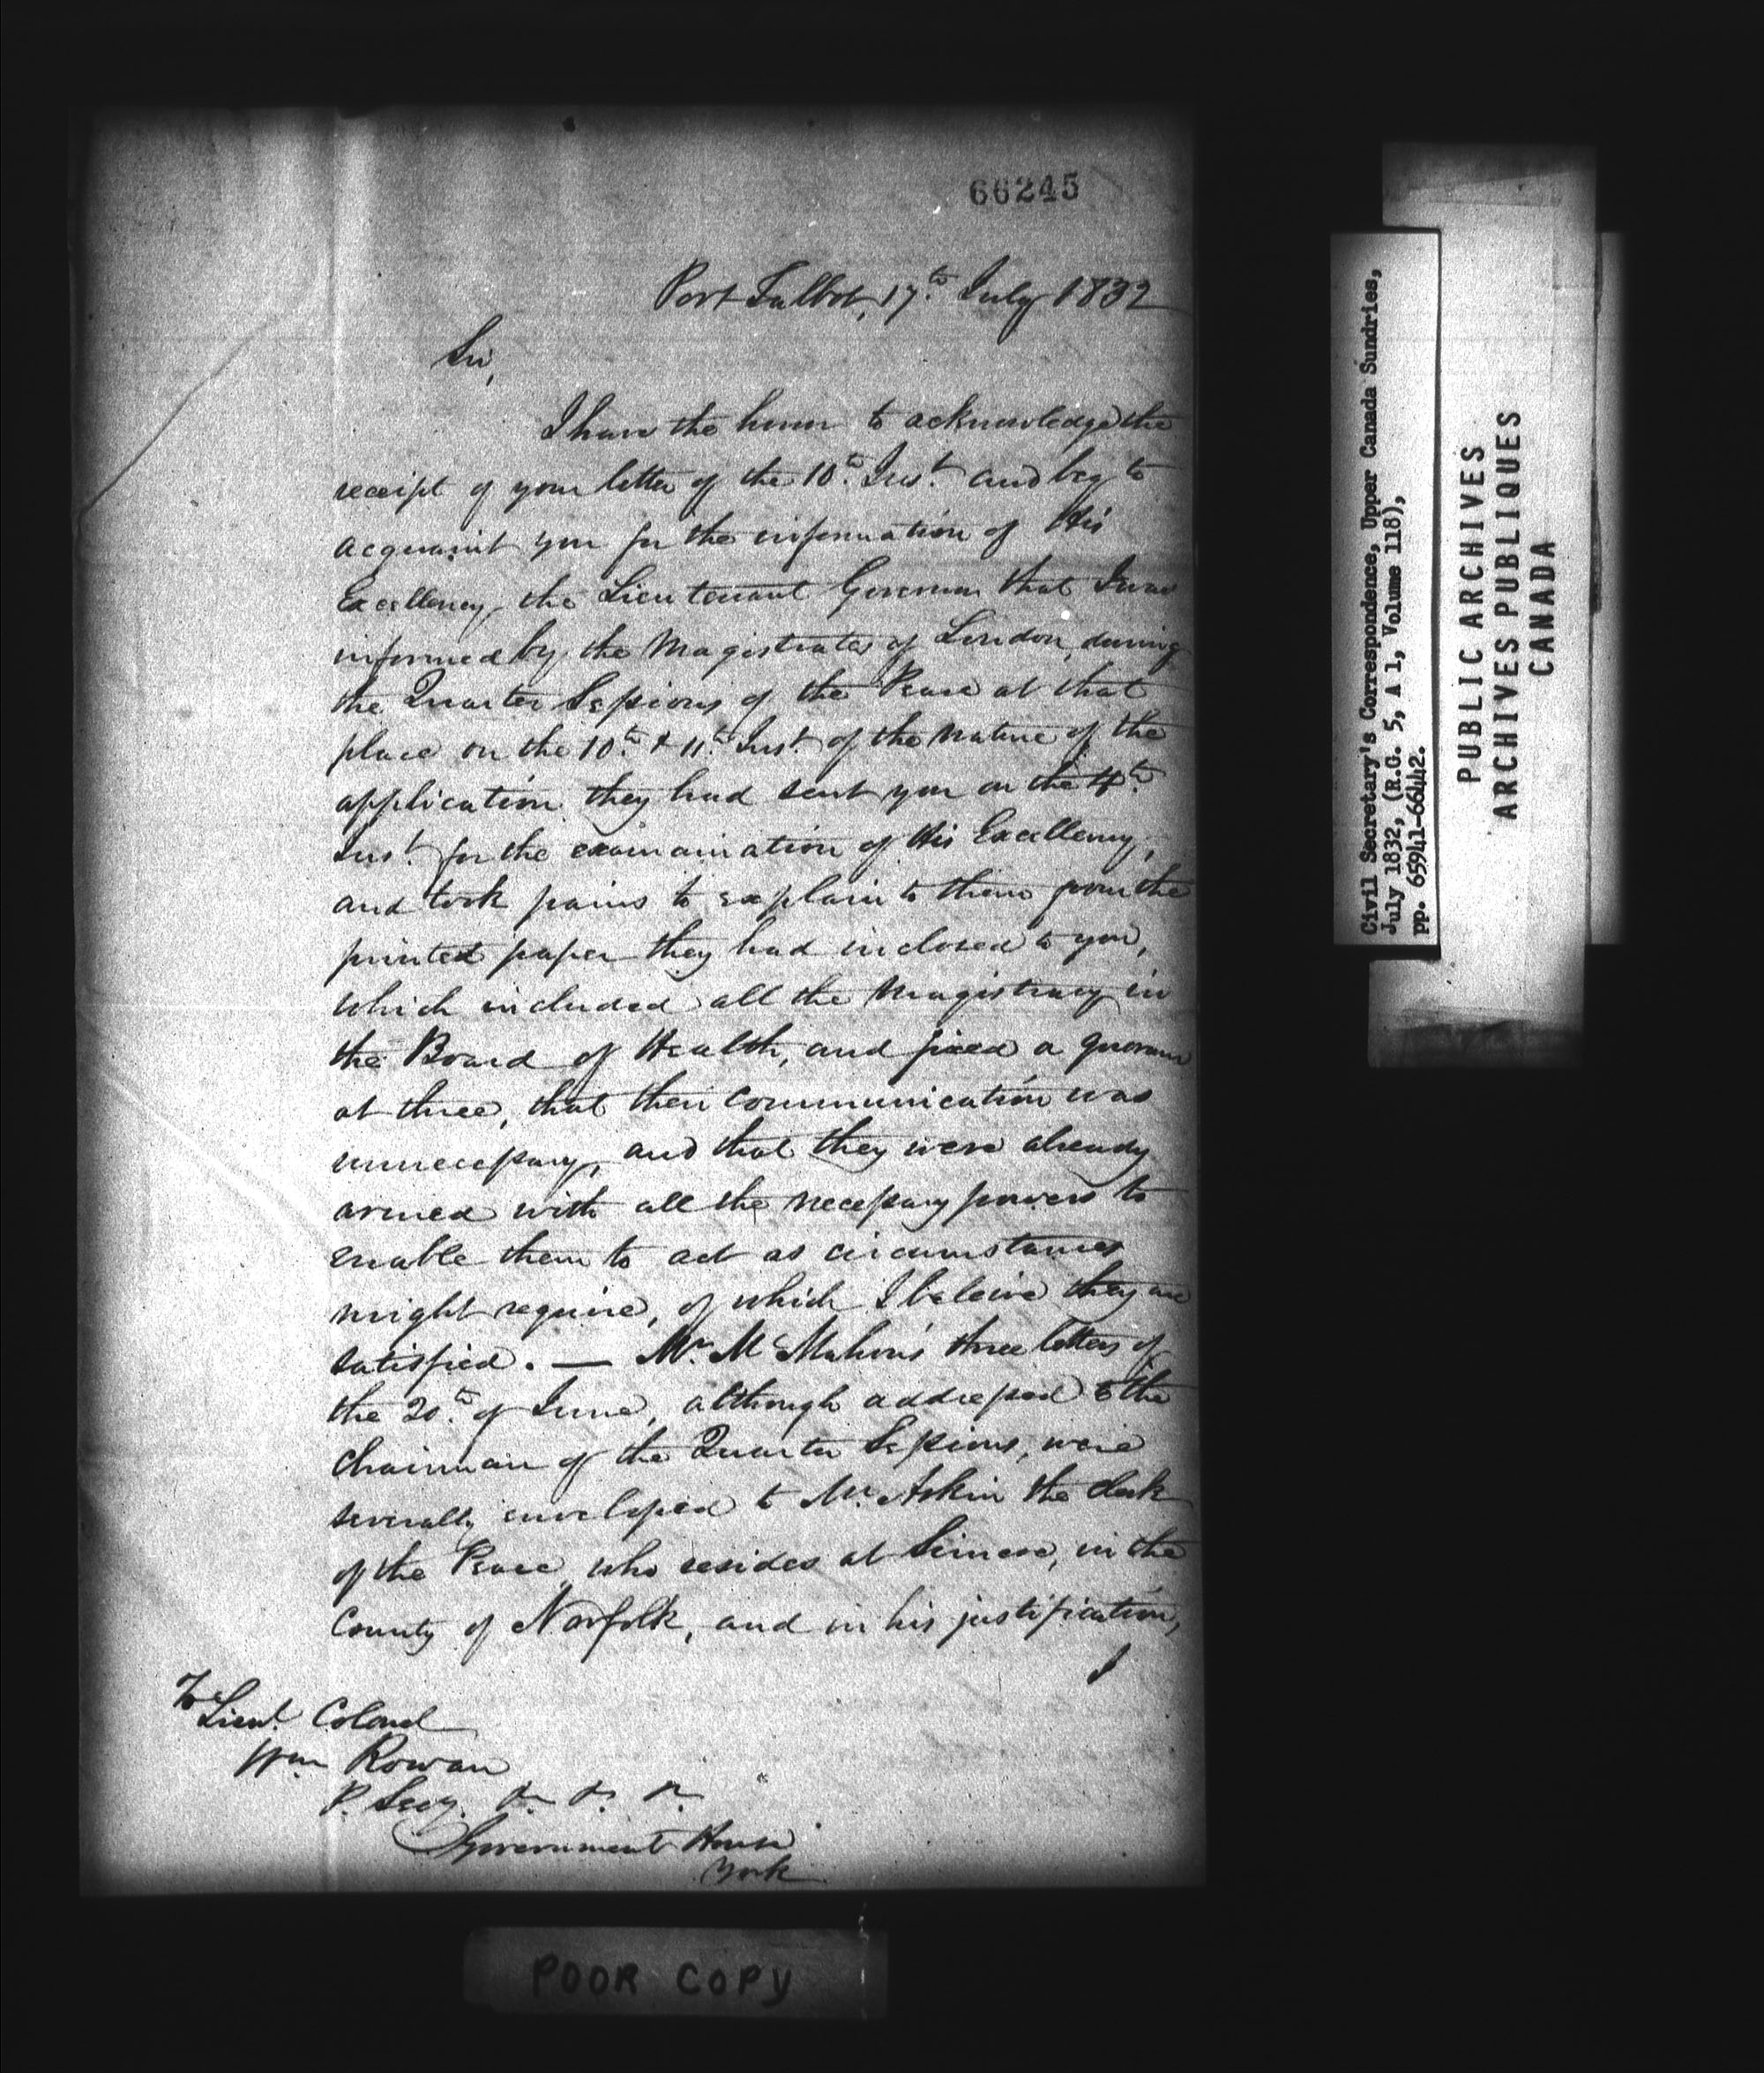 66245
Port Talbot, 17th July 1832
Sir,
I have the honor to acknowledge the
receipt of your letter of the 10th Inst. and beg to
acquaint you for the information of His
Excellency, the Lieutenant Governor that I was
informed by the Magistrates of London, during
the Quarter Sessions of the Peace at that
place on the 10th & 11th Inst. of the nature of the
application they had sent you on the 4th
Inst. for the examination of His Excellency,
and took pains to explain to them from the
printed paper they had inclosed to you,
which included all the Magistracy in
the Board of Health, and fixed a quorum
at three, that their communication was
unnecessary, and that they were already
armed with all the necessary powers to
enable them to act as circumstances
might require, of which I beleive they are
satisfied. — Mr. M Mahon's three letters of
the 20th of June, although addressed to the
Chairman of the Quarter Sessions, were
severally enveloped to Mr. Askin the Clerk
of the Peace, who resides at Simcoe, in the
County of Norfolk, and in his justification,
I
To Lieut. Colonel
Wm Rowan
P. Secy. &c &c &c
Government House
York
POOR COPY
Civil Secretary's Correspondence, Upper Canada Sundries,
July 1832, (R.G. 5, A 1, Volume 118),
pp. 65941-66442.
PUBLIC ARCHIVES
ARCHIVES PUBLIQUES
CANADA